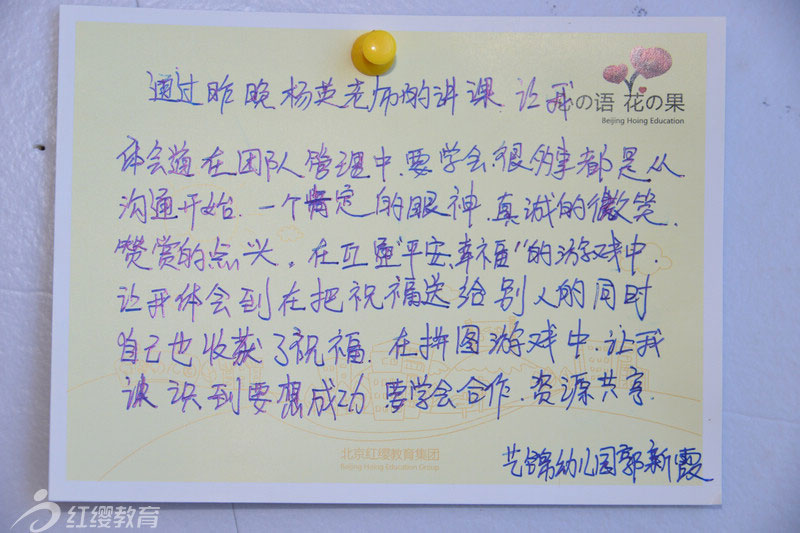 通过昨晚杨英老师的讲课 让我
の语 花の果
Beijing Hoing Education
体会道在团队管理中.要学会很多事都是从
沟通开始.一个肯定的眼神.真诚的微笑.
赞赏的点头。在互道"平安幸福"的游戏中.
让我体会到在把祝福送给别人的同时
自己也收获了祝福.在拼图游戏中.让我
识到要想成功 要学会合作.资源共享.
北京红缨教育集团
Beijing Hoing Education Group
幼儿园郭新霞
红缨教育